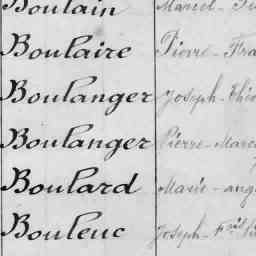 Boulain Marcel
Boulaire Pierre-Fra
Boulanger Joseph-Théo
Boulanger Pierre-Marc
Boulard Marie-ang
Bouleuc Joseph-Frs